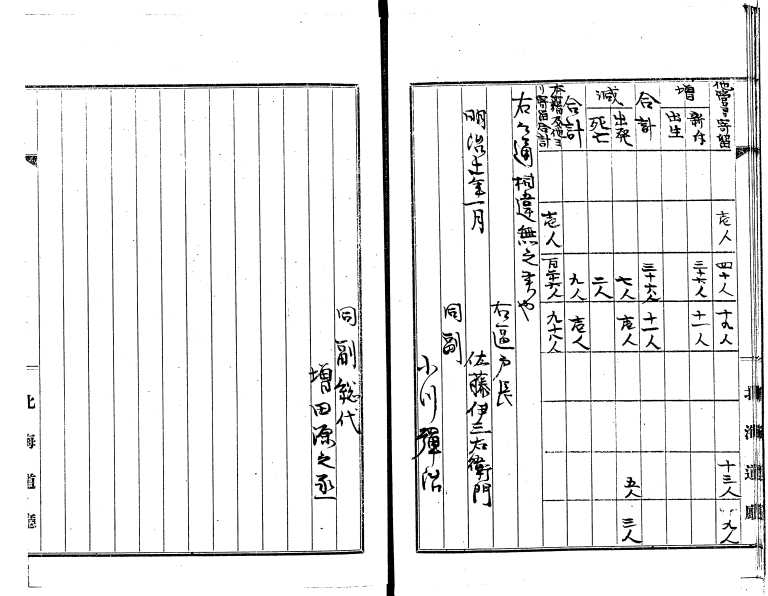 他管ヨリ寄留 壱人 四十人 十九人 十三人 九人
増 新仔 三十六人 十一人
出生
合計 三十六人 十一人
減 出発 七人 壱人 五人 三人
死亡 二人
合計 九人 壱人
寄留合計 壱人 九十八人
右之通相違無之者也
明治十一年一月
右區戸長
佐藤伊三右衛門
同副
小川彈治
北海道廳
同副総代
増田源之丞
北海道廳